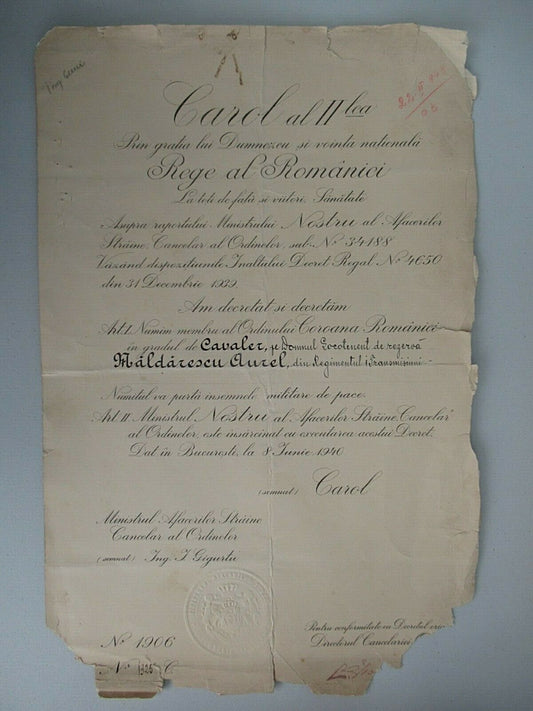 Carol al II lea
Prin gratia lui Dumnezeu si vointa natională
Rege al României
La toti de fată si viitori, Sănătate
Asupra raportului Ministrului Nostru al Afacerilor
Străine, Cancelar al Ordinelor, sub Nº 34188
Văzând dispozitiunile Inaltului Decret Regal Nº 4650
din 31 Decembrie 1939.
Am decretat si decretăm
Art. I. Numim membru al Ordinului Coroana României
in gradul de Cavaler, pe Domnul Locotenent de rezervă
Măldărescu Aurel, din Regimentul 1 Transmisiuni
Numitul va purta insemnele militare de pace.
Art. II. Ministrul Nostru al Afacerilor Străine, Cancelar
al Ordinelor, este însărcinat cu executarea acestui Decret.
Dat în Bucuresti, la 8 Iunie 1940
(semnat) Carol
Ministrul Afacerilor Străine
Cancelar al Ordinelor
(semnat) Ing. I. Gigurtu
Pentru conformitate cu Decretul
Directorul Cancelariei
Nº 1906